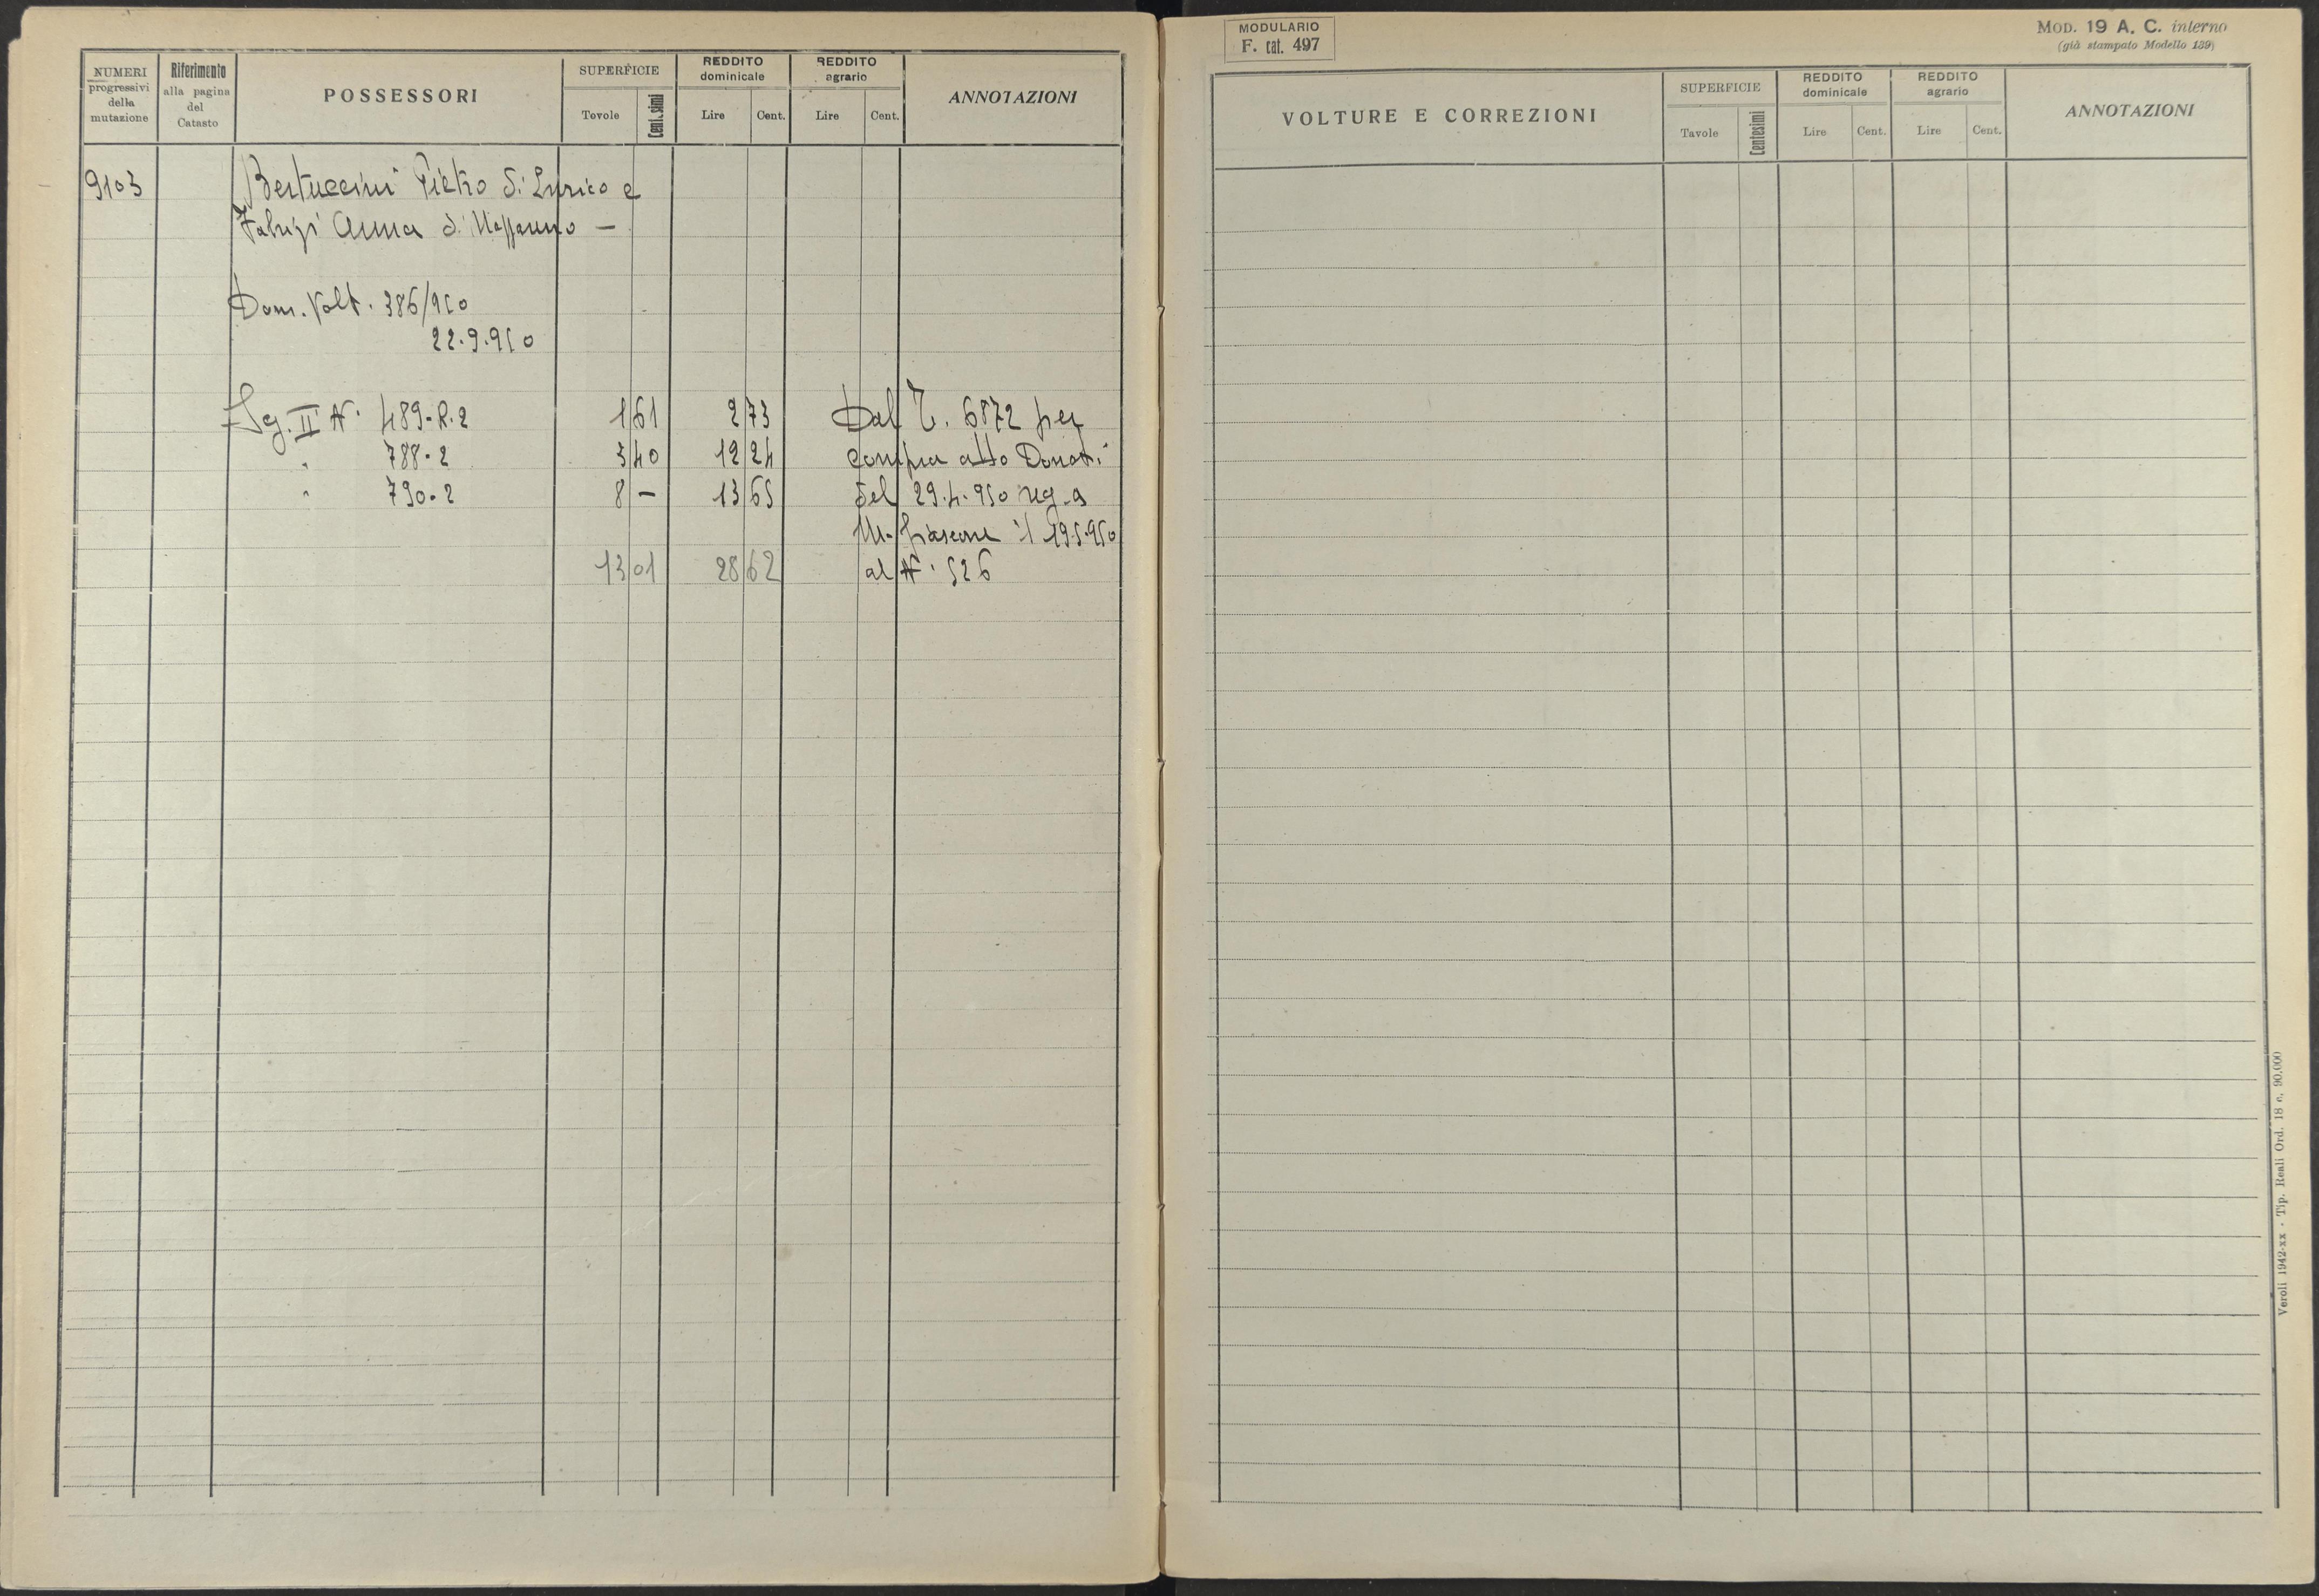 NUMERI progressivi della mutazione
Riferimento alla pagina del Catasto
POSSESSORI
SUPERFICIE
Tavole Centesimi
REDDITO dominicale
Lire Cent.
REDDITO agrario
Lire Cent.
ANNOTAZIONI
9103 Bertuccini Pietro di Enrico e
Fabrizi Anna di
Dom. Volt. 386/950
22.9.950
Sg. II N. 489-R.2 1 61 2 73 Dal T. 6872 per
" 788-2 3 40 12 24 compra atto Donati
" 790-2 8 — 13 65 del 29.4.950 reg. a
M. Fiascone il 19.5.950
13 01 28 62 al N. 526
MODULARIO
F. cat. 497
MOD. 19 A. C. interno
(già stampato Modello 139)
VOLTURE E CORREZIONI
SUPERFICIE
Tavole Centesimi
REDDITO dominicale
Lire Cent.
REDDITO agrario
Lire Cent.
ANNOTAZIONI
Veroli 1942-XX - Tip. Reali Ord. 18 n. 90.000